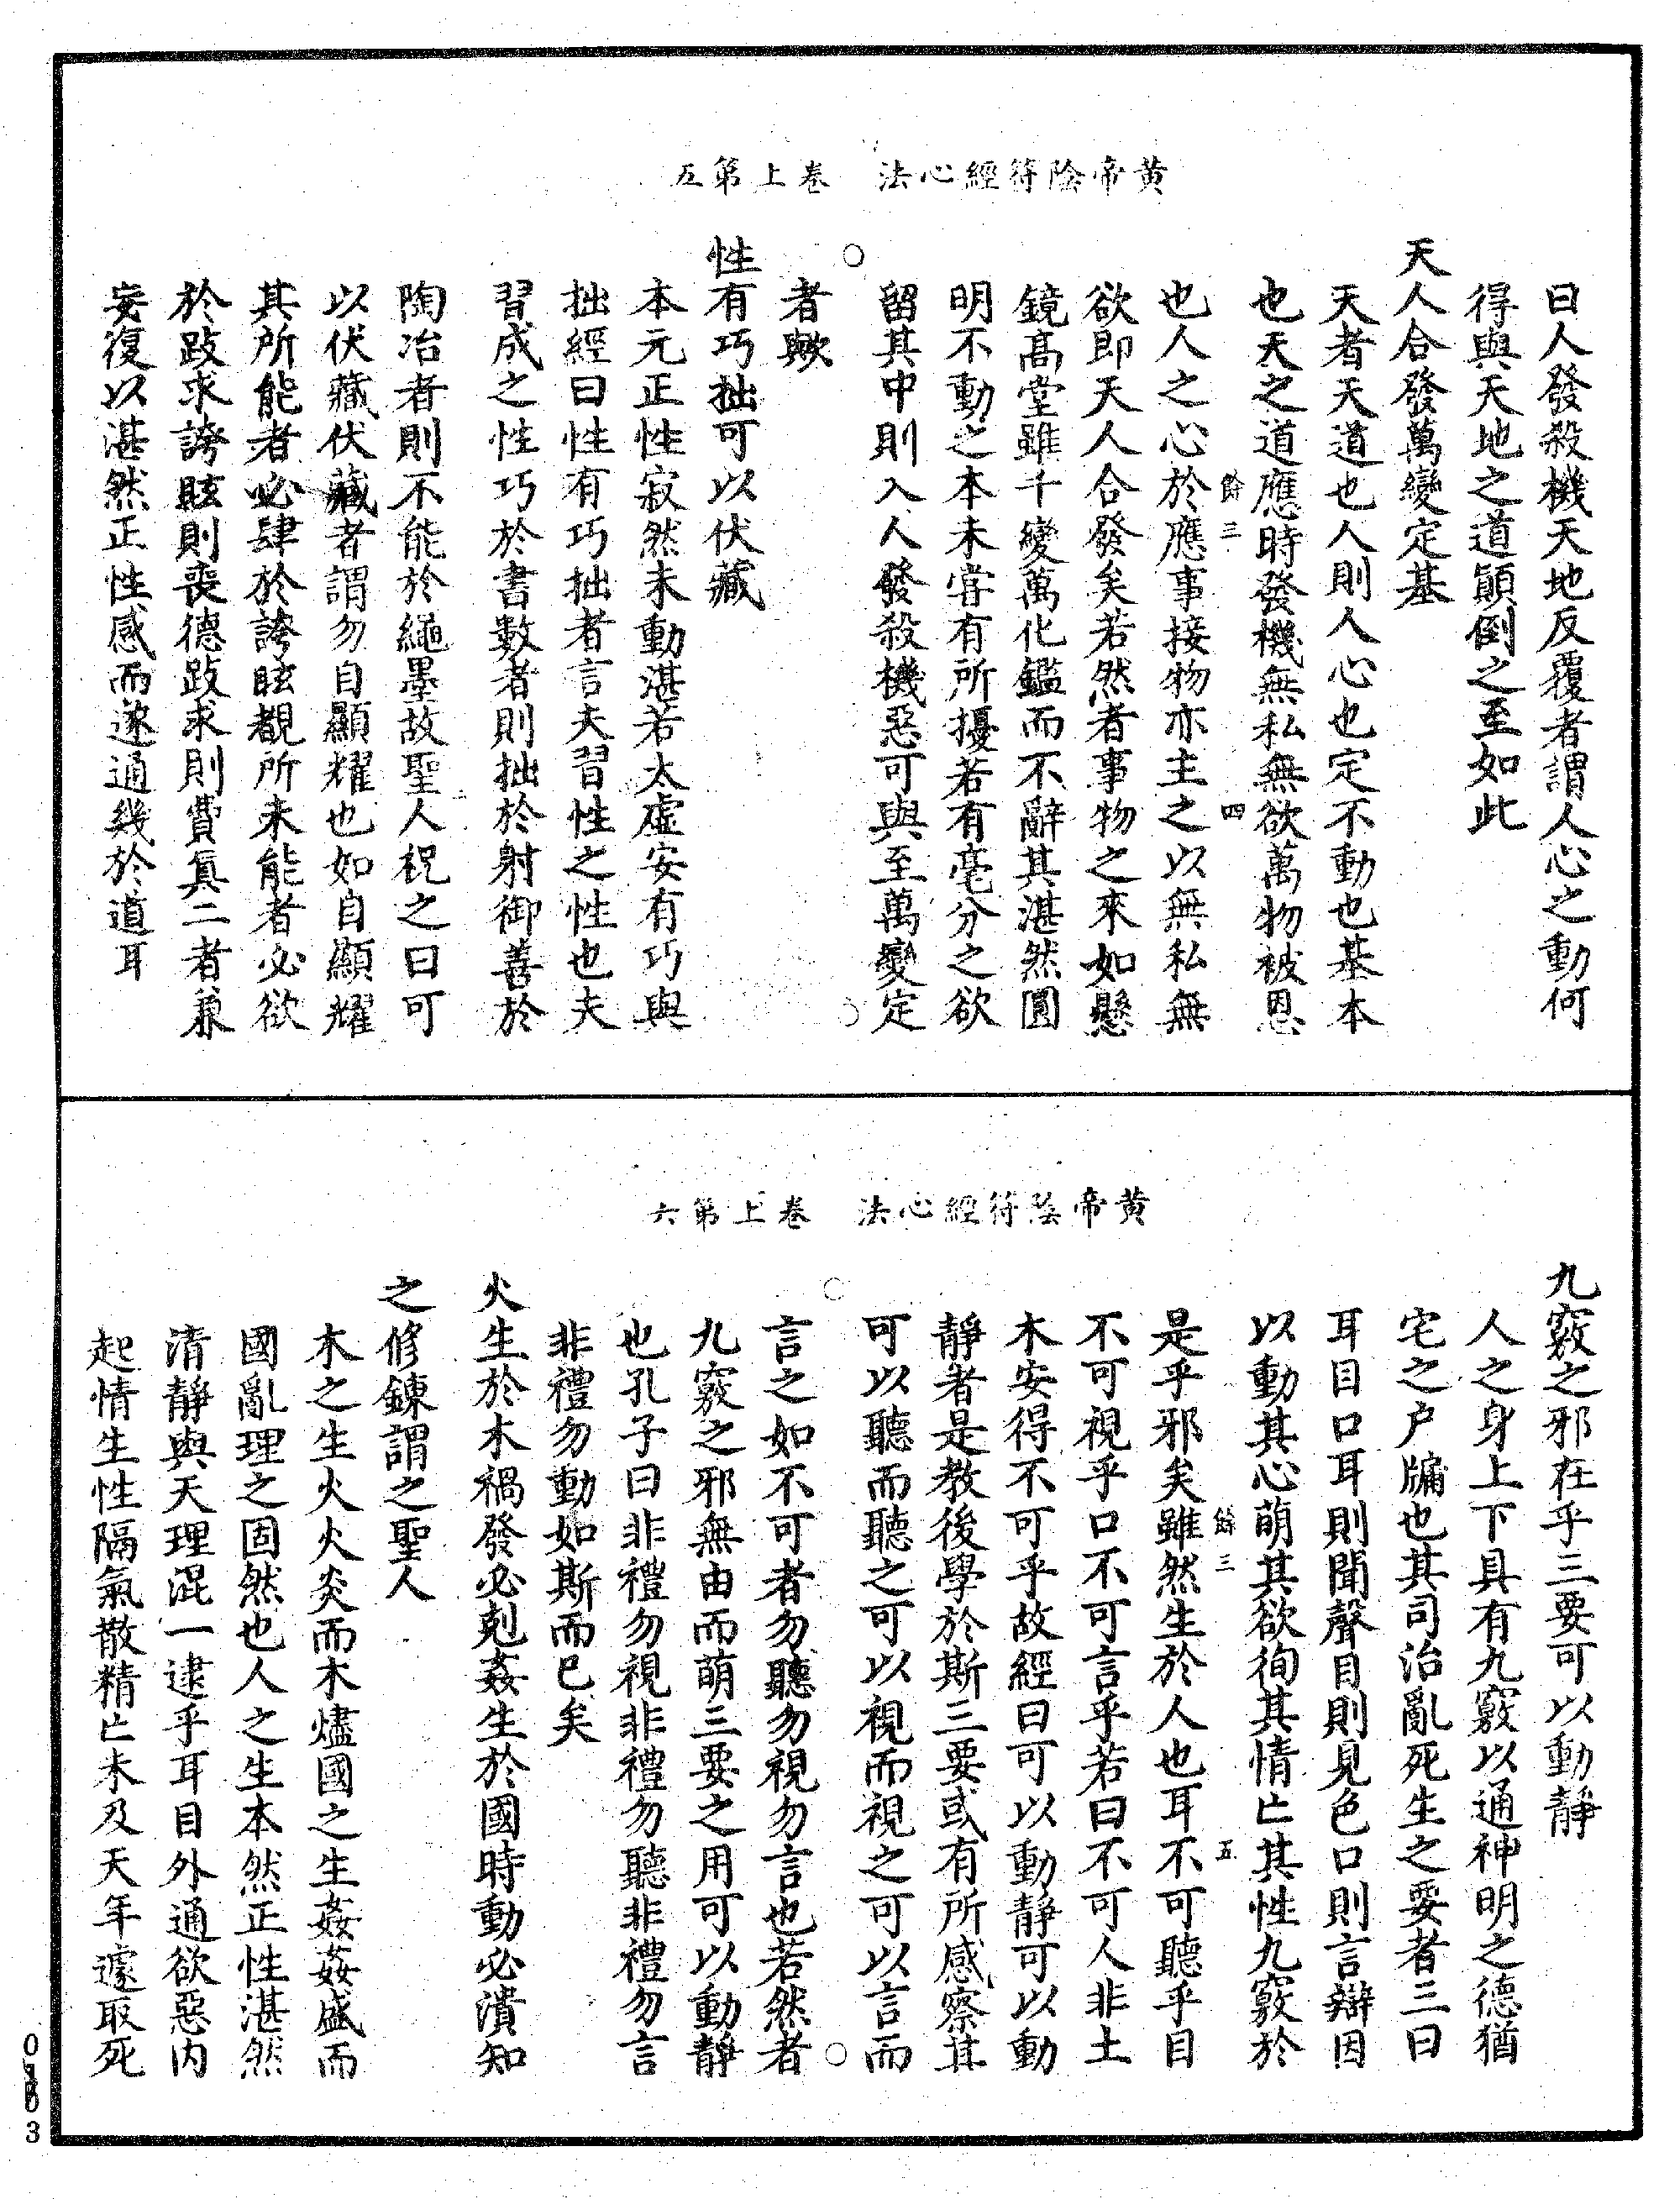 黄帝陰符經心法　卷上第五
曰人發殺機天地反覆者謂人心之動何
得與天地之道顛倒之至如此
天人合發萬變定基
天者天道也人則人心也定不動也基本
也天之道應時發機無私無欲萬物被恩
餘三　四
也人之心於應事接物亦主之以無私無
欲即天人合發矣若然者事物之來如懸
鏡高堂雖千變萬化鑑而不辭其湛然圓
明不動之本未嘗有所擾若有毫分之欲
留其中則入人發殺機惡可與至萬變定
者歟
性有巧拙可以伏藏
本元正性寂然未動湛若太虛安有巧與
拙經曰性有巧拙者言夫習性之性也夫
習成之性巧於書數者則拙於射御善於
陶冶者則不能於繩墨故聖人祝之曰可
以伏藏伏藏者謂勿自顯耀也如自顯耀
其所能者必肆於誇眩覩所未能者必欲
於跂求誇眩則喪德跂求則費真二者兼
妄復以湛然正性感而遂通幾於道耳
黄帝陰符經心法　卷上第六
九竅之邪在乎三要可以動靜
人之身上下具有九竅以通神明之德猶
宅之户牖也其司治亂死生之要者三曰
耳目口耳則聞聲目則見色口則言辯因
以動其心萌其欲徇其情亡其性九竅於
餘三　五
是乎邪矣雖然生於人也耳不可聽乎目
不可視乎口不可言乎若曰不可人非土
木安得不可乎故經曰可以動靜可以動
靜者是教後學於斯三要或有所感察其
可以聽而聽之可以視而視之可以言而
言之如不可者勿聽勿視勿言也若然者
九竅之邪無由而萌三要之用可以動靜
也孔子曰非禮勿視非禮勿聽非禮勿言
非禮勿動如斯而已矣
火生於木禍發必剋姦生於國時動必潰知
之修鍊謂之聖人
木之生火火炎而木燼國之生姦姦盛而
國亂理之固然也人之生本然正性湛然
清靜與天理混一逮乎耳目外通欲惡内
起情生性隔氣散精亡未及天年遽取死